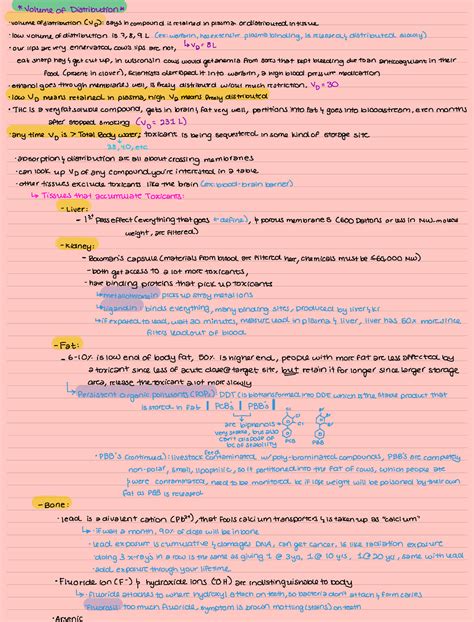 *Volume of Distribution*
· volume of distribution (VD): says if compound is retained in plasma or distributed in tissue
· low volume of distribution is 7, 8, 9 L (ex: warfarin, has extensive plasma binding, is released & distributed slowly)
· our lips are very enervated, cows lips are not, ↳ VD = 8L
eat sharp hay & get cut up, in wisconsin cows would get anemia from sores that kept bleeding due to an anticoagulant in their
food (present in clover), scientists developed it into warfarin, a high blood pressure medication
· ethanol goes through membranes well, is freely distributed w/out much restriction, VD = 30
· low VD means retained in plasma, high VD means freely distributed
· THC is a very fat soluble compound, gets in brain, & fat very well, partitions into fat & goes into bloodstream, even months
after stopped smoking (VD = 231 L)
· any time VD is > Total Body water, toxicant is being sequestered in some kind of storage site
38, 40, etc
· absorption & distribution are all about crossing membranes
· can look up VD of any compound you're interested in a table
· other tissues exclude toxicants like the brain (ex: blood-brain barrier)
↳ Tissues that accumulate Toxicants:
- Liver:
- 1st pass effect (everything that goes ← define), & porous membranes (600 Daltons or less in MW, molec
weight, are filtered)
- Kidney:
- Bowman's capsule (materials from blood are filtered her, chemicals must be ≤66,000 MW)
- both get access to a lot more toxicants,
- hav binding proteins that pick up toxicants
↳ metallothionein picks up array metal ions
↳ ligandin binds everything, many binding sites, produced by liver & ki
↳ if exposed to lead, wait 30 minutes, measure lead in plasma & liver, liver has 60x more since
filters lead out of blood
- Fat:
- 6-10% is low end of body fat, 50% is higher end, people with more fat are less affected by
a toxicant since less of acute dose @ target site, but retain it for longer since larger storage
area, release the toxicant a lot more slowly
↳ Persistent organic pollutants (POPs): DDT (is biotransformed into DDE which is the stable product that
is stored in fat | PCB's | PBB's |
are biphenols →
very stable, but also
can't dispose of
b/c of stability
PCB PBB
· PBB's (continued): livestock feed contaminated w/ poly-brominated compounds, PBB's are completely
non-polar, small, lipophilic, so it partitioned into the fat of cows, which people ate
& were contaminated, need to be monitored bc if lose weight will be poisoned by their own
fat as PBB is released
- Bone:
· lead is a divalent cation (Pb2+), that fools calcium transporters & is taken up as "calcium"
↳ if wait a month, 90% of dose will be in bone
· lead exposure is cumulative & damages DNA, can get cancer, is like radiation exposure
· doing 3 x-rays in a row is the same as giving 1 @ 3yo, 1 @ 10 yrs, 1 @ 20 yo, same with lead
· add exposure through your lifetime
· Fluoride ion (F-) & hydroxide ions (-OH) are indistinguishable to body
↳ Fluoride attaches to where hydroxyl attach on teeth, so bacteria don't attach & form caries
Fluorosis: too much fluoride, symptom is brown mottling (stains) on teeth
· Arsenic